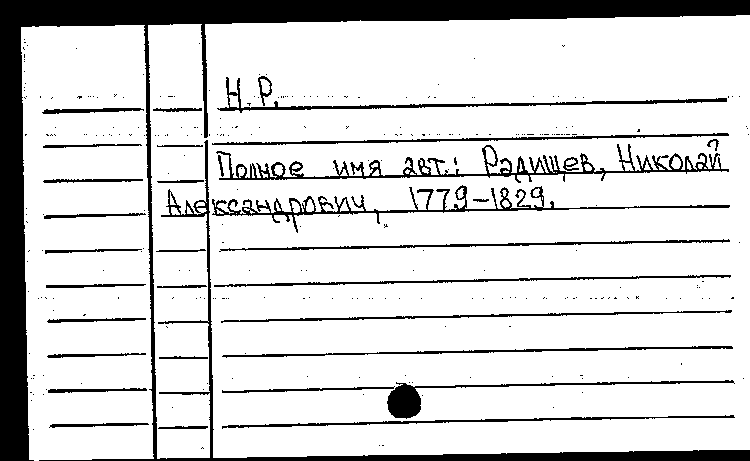 Н. Р.
Полное имя авт.: Радищев, Николай
Александрович, 1779-1829.